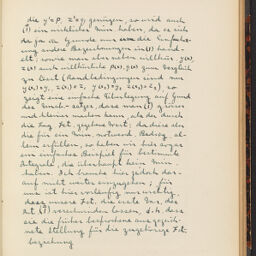 die y=p, z=q, genügen, so wird auch
(1) ein wirkliches Min. haben, da es sich
ja im Grunde nur um die Einführ-
ung andere Bezeichnungen in (1) hand-
elt; sowie man aber neben y(x),
z(x) auch willkürliche p(x), q(x) zum Vergleich
zu lässt (Randbedingungen sind nur
so
zeigt eine einfache Überlegung auf Grund
des satzes, dass man (1)
und kleiner machen kann, als der durch
die Lag. Fct. gegebene Wert; da diese also
die für ein Min. notwend. Beding. al-
lein erfüllen, so haben wir hier sogar
ein einfaches Beispiel für bestimmte
Integrale, die überhaupt kein Min.
haben. Ich brauche hier jedoch dar-
auf nicht weiter einzugehen; für
uns ist hier vorläufig nur wichtig,
dass unsere Fct. die erste Var. des
Int. (1) verschwinden lassen, d.h. dass
sie die früher besprochene ausgezeich-
nete Stellung für die zugehörige Fct.
beziehung